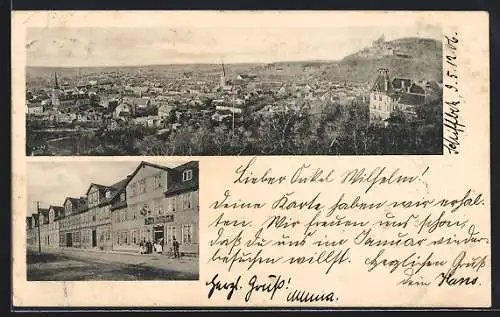 Lieber Onkel Wilhelm!
Deine Karte haben wir erhal-
ten. Wir freuen uns schon,
daß du uns im Januar wieder
besuchen willst. Herzlichen Gruß
dein Hans.
Herzl. Gruß!
Mama.